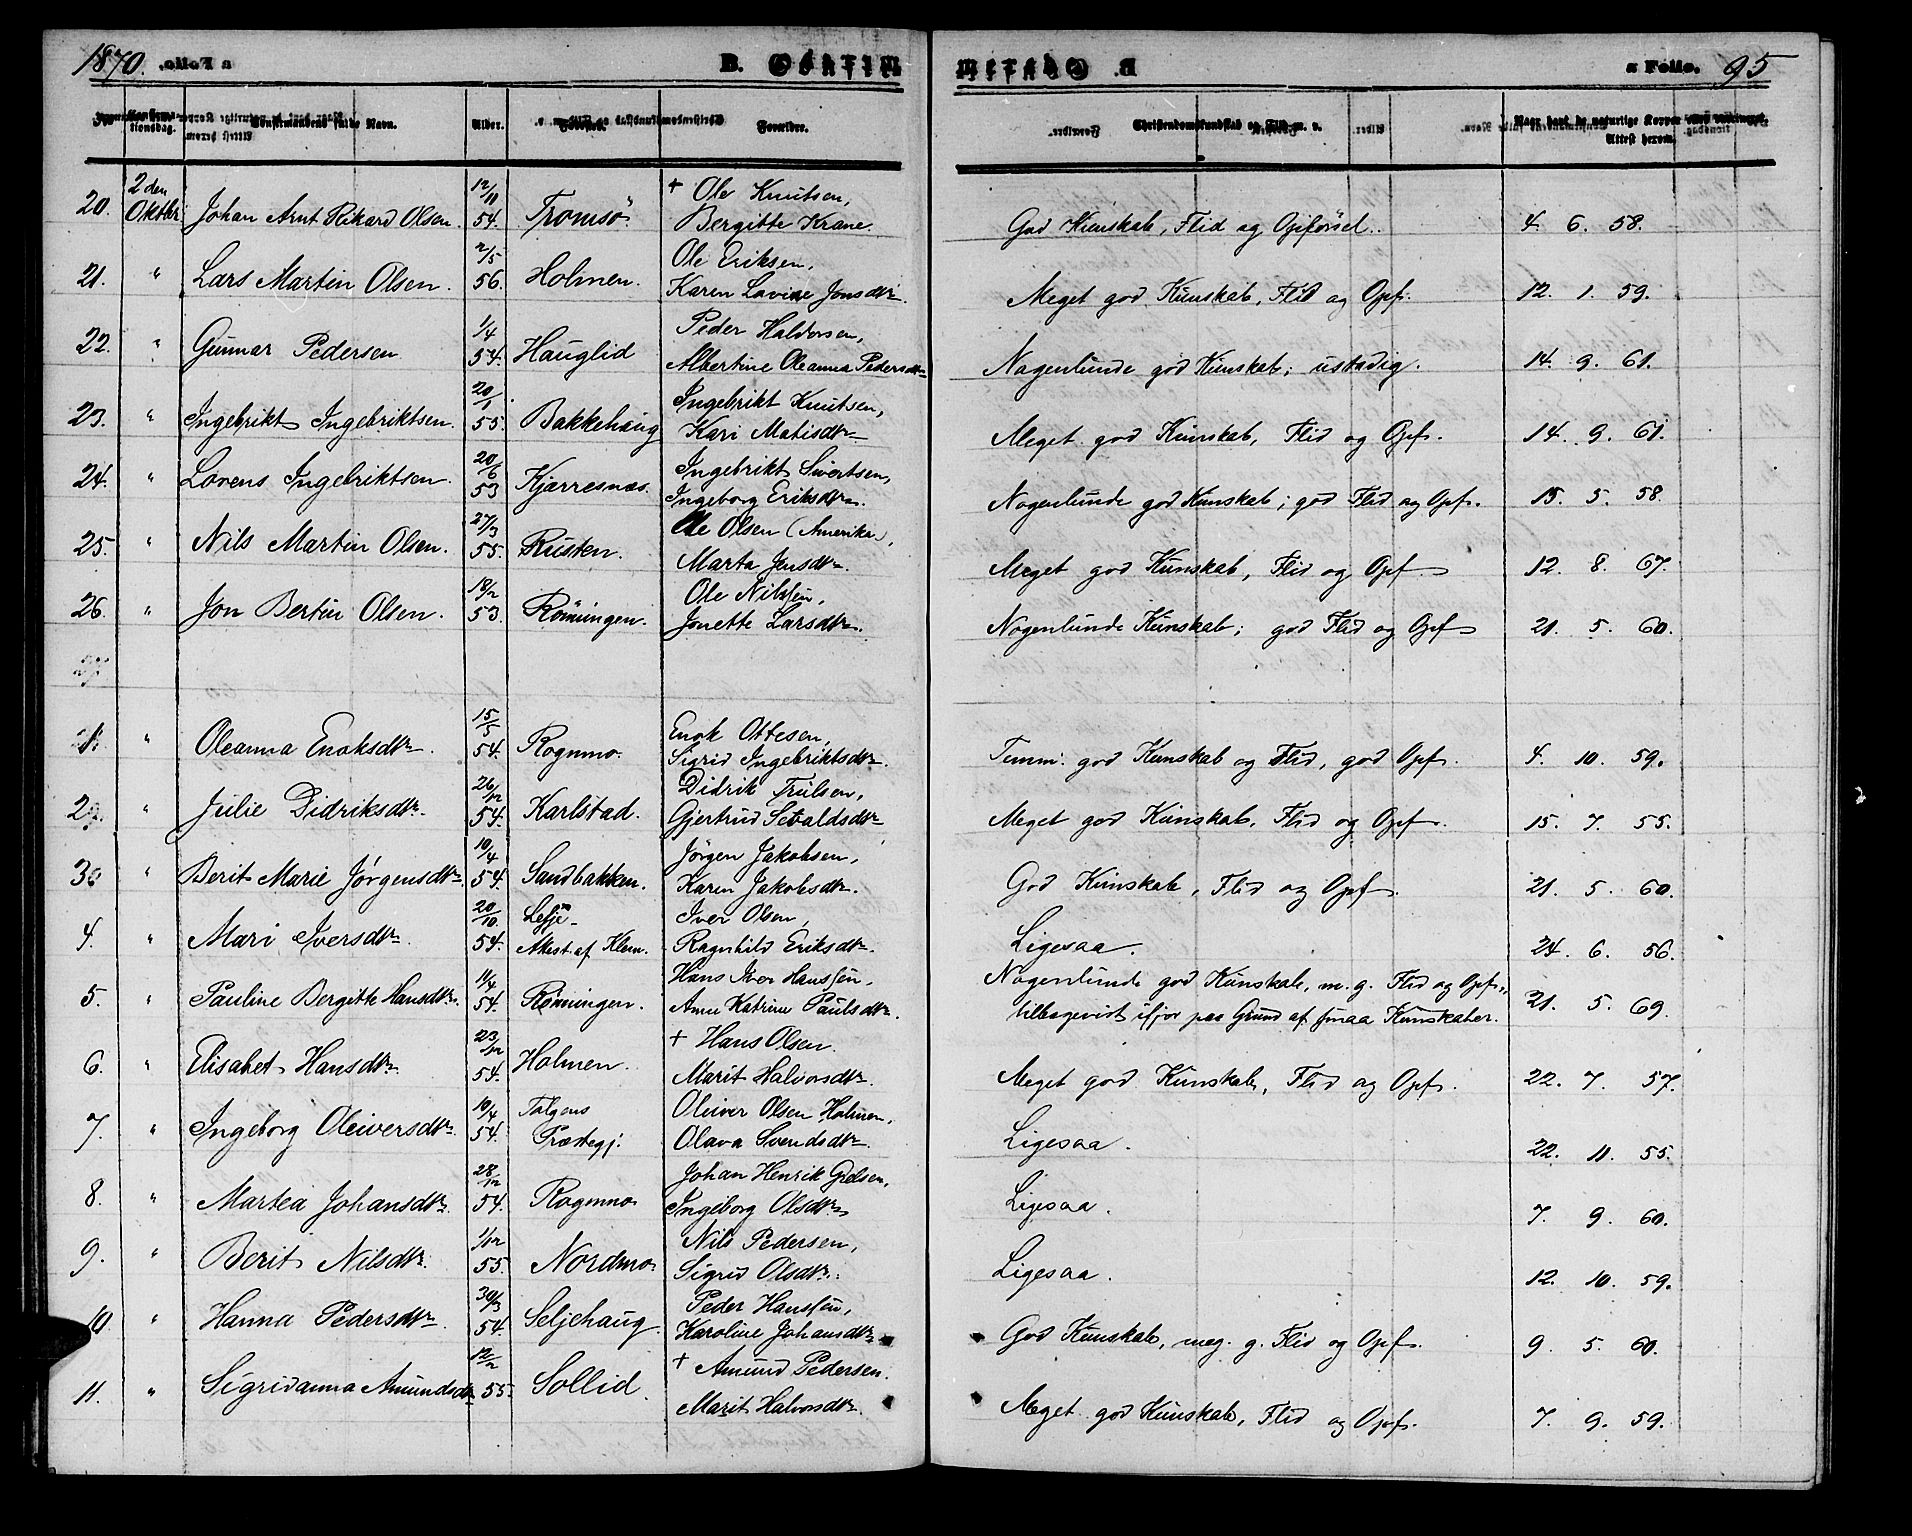 1870. a Folio.
B. Confirm
B. Confirm
a Folio. 95
No. Confirmationsdag. Confirmandens fulde Navn. Alder. Forældre.
Christendomskundskab og Flid m. v. Naar havt de naturlige Kopper eller vaccineret. Attest herom.
20. 2den Oktbr Johan Arnt Rikard Olsen. 12/11 54. Tromsö + Ole Knutsen, Bergitte Krane God Kunskab, Flid og Opförsel. 4. 6. 58.
21. " Lars Martin Olsen. 2/5 56. Holmen. Ole Eriksen, Karen Lovise Jonsdtr. Meget god Kunskab, Flid og Opf. 12. 1. 59.
22. " Gunnar Pedersen 1/4 54. Hauglid Peder Haldorsen, Albertine Oleanna Pedersdtr Nogenlunde god Kunskab; ustadig. 14. 9. 61.
23. " Ingebrikt Ingebriktsen. 20/1 55. Bakkehaug Ingebrikt Knutsen, Kari Matisdtr Meget god Kunskab, Flid og Opf. 14. 9. 61.
24. " Lorens Ingebriktsen. 20/6 53 Kjærresnæs. Ingebrikt Sivertsen, Ingeborg Eriksdtr. Nogenlunde god Kunskab; god Flid og Opf. 15. 5. 58.
25. " Nils Martin Olsen. 27/3 55. Rusten. Ole Olsen (Amerika), Marta Jensdtr. Meget god Kunskab, Flid og Opf. 12. 8. 67.
26. " Jon Bertin Olsen. 18/2 53. Rönningen. Ole Nilssen, Jonette Larsdtr. Nogenlunde Kunskab; god Flid og Opf 21. 5. 60.
27.
" Oleanna Enoksdtr. 15/5 54. Rognmo. Enok Ottesen, Sigrid Ingebriktsdtr. Temm. god Kunskab og Flid, god Opf. 4. 10. 59.
" Julie Didriksdtr. 26/12 54. Karlstad. Didrik Trulsen, Gjertrud Sevaldsdtr Meget god Kunskab, Flid og Opf. 15. 7. 55.
" Berit Marie Jörgensdtr. 10/4 54. Sandbakken. Jörgen Jakobsen, Karen Jakobsdtr. God Kunskab, Flid og Opf. 21. 5. 60.
4. " Mari Iversdtr. 20/10. 54. Attest af Klem. Iver Olsen, Ragnhild Eriksdtr. Ligesaa. 24. 6. 56.
5. " Pauline Bergitte Hansdtr. 11/4 54. Rönningen. Hans Iver Hanssen, Anne Katrine Paulsdtr. Nogenlunde god Kunskab, m. g. Flid og Opf.,
tilbagevist ifjor paa Grund af smaa Kunskaber. 21. 5. 69.
6. " Elisabet Hansdtr. 23/12 54. Holmen. + Hans Olsen. Marit Halvorsdtr. Meget god Kunskab, Flid og Opf. 22. 7. 57.
7. " Ingeborg Oleiversdtr. 10/4 54. Tolgens Præstegj. Oleiver Olsen Holmen, Olava Svendsdtr. Ligesaa. 22. 11. 55.
8. " Martea Johansdtr. 28/12 54. Rognmo Johan Henrik Grelsen, Ingeborg Olsdtr. Ligesaa. 7. 9. 60.
9. " Berit Nilsdtr. 1/12 55. Nordmo Nils Pedersen, Sigrid Olsdtr. Ligesaa. 12. 10. 59.
10. " Hanna Pedersdtr. 30/3 54. Seljehaug. Peder Hanssen, Karoline Johansdtr God Kunskab, meg. g. Flid og Opf. 9. 5. 60.
11. " Sigridanna Amundsdtr 12/2 55. Sollid. + Amund Pedersen. Marit Halvorsdtr. Meget god Kunskab, Flid og Opf. 7. 9. 59.